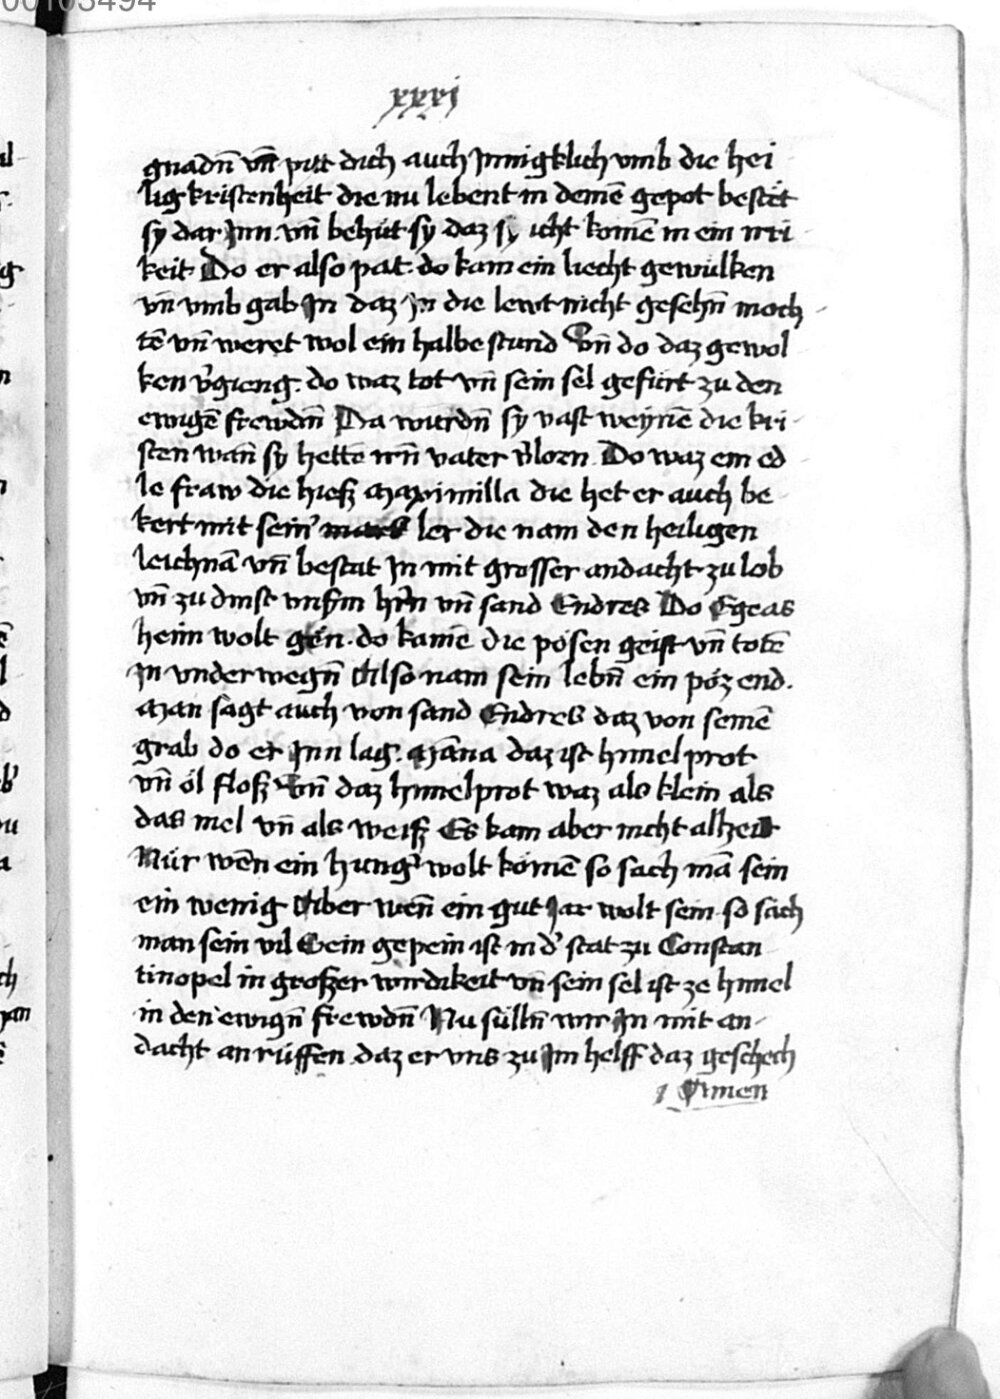 00103494
xxxj
gnadn̄ vn̄ pitt dich auch Jnnigklich vmb die hei
lig kristenheit die nu lebent in deinē gepot bestet
sy dar Jnn vn̄ behüt sy daz sy icht komē in ein irri
keit Do er also pat. do kam ein liecht gewulken
vn̄ vmb gab Jn daz Jn die lewt nicht gesehn̄ moch
tē vn̄ weret wol ein halbe stund Vn̄ do daz gewol
ken v̓gieng. do waz tot vn̄ sein sel gefürt zu den
ewigē frewdn̄ Da wurdn̄ sy vast weynē die kri
sten wan̄ sy hettē irn̄ vater v̓lorn Do waz ein ed
le fraw die hiesz Maximilla die het er auch be
kert mit sein̓ ler die nam den heiligen
leichnā vn̄ bestat Jn mit grosser andacht zu lob
vn̄ zu dinst vnſm hr̄n vn̄ sand Endres Do Egeas
heim wolt gen. do kamē die pösen geist vn̄ totē
Jn vnder wegn̄ Also nam sein lebn̄ ein pöz end.
Man sagt auch von sand Endres daz von seinē
grab do er Jnn lag. Māna daz ist himel prot
vn̄ öl flosz Vn̄ daz himelprot waz als klein als
das mel vn̄ als weisz Es kam aber nicht allzeit
Nür wen̄ ein hung̓ wolt kömē so sach mā sein
ein wenig Aber wen̄ ein gut Jar wolt sein so sach
man sein vil Sein gepein ist in d̓ stat zu Constan
tinopel in groszer wirdikeit vn̄ sein sel ist ze himel
in den ewign̄ frewdn̄ Nu sülln̄ wir Jn mit an
dacht an rüffen daz er vns zu Jm helff daz geschech
Amen